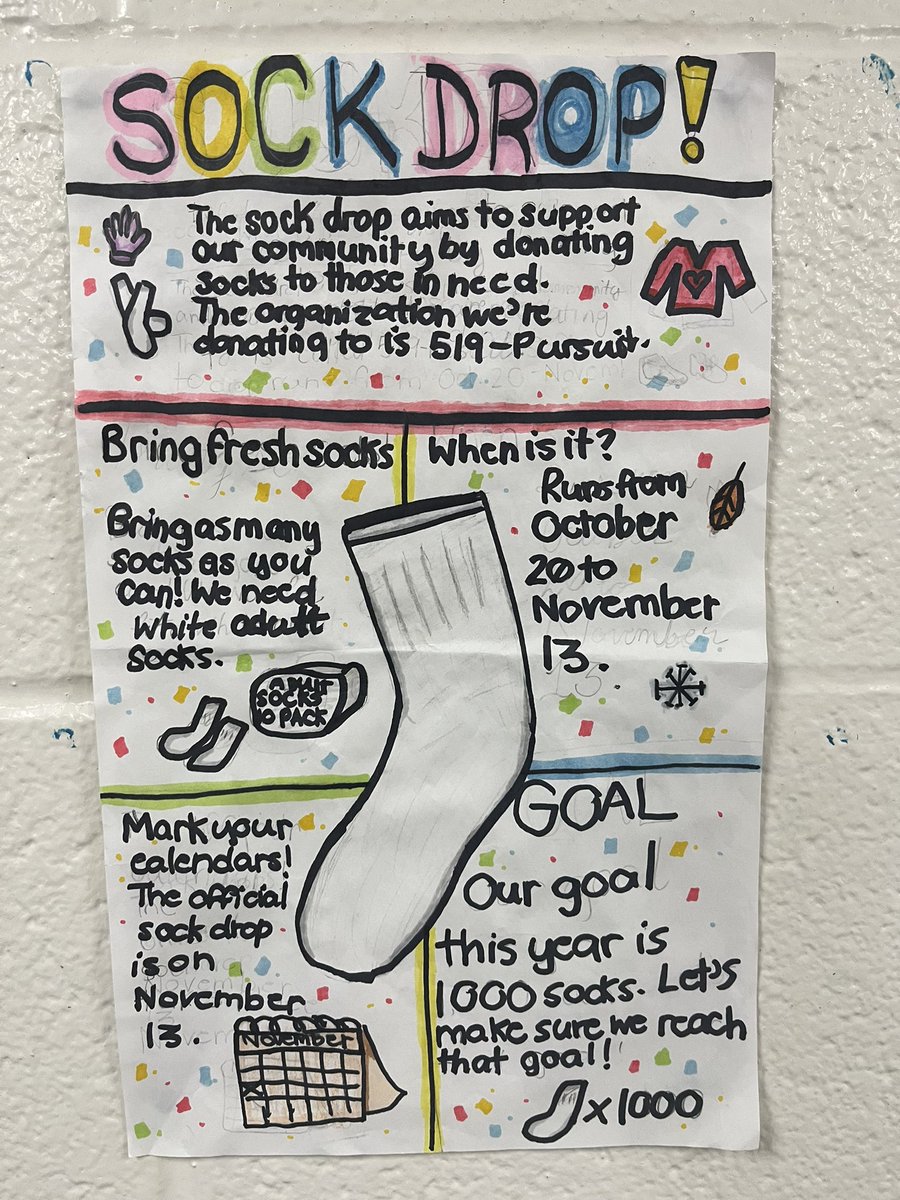 SOCK DROP!
The sock drop aims to support
our community by donating
socks to those in need.
The organization we're
donating to is 519-Pursuit.
Bring fresh socks
Bring as many
socks as you
can! We need
white adult
socks.
ADULT
SOCKS
10 PACK
When is it?
Runs from
October
20 to
November
13.
Mark your
calendars!
The official
sock drop
is on
November
13.
November
GOAL
Our goal
this year is
1000 socks. Let's
make sure we reach
that goal!
x1000